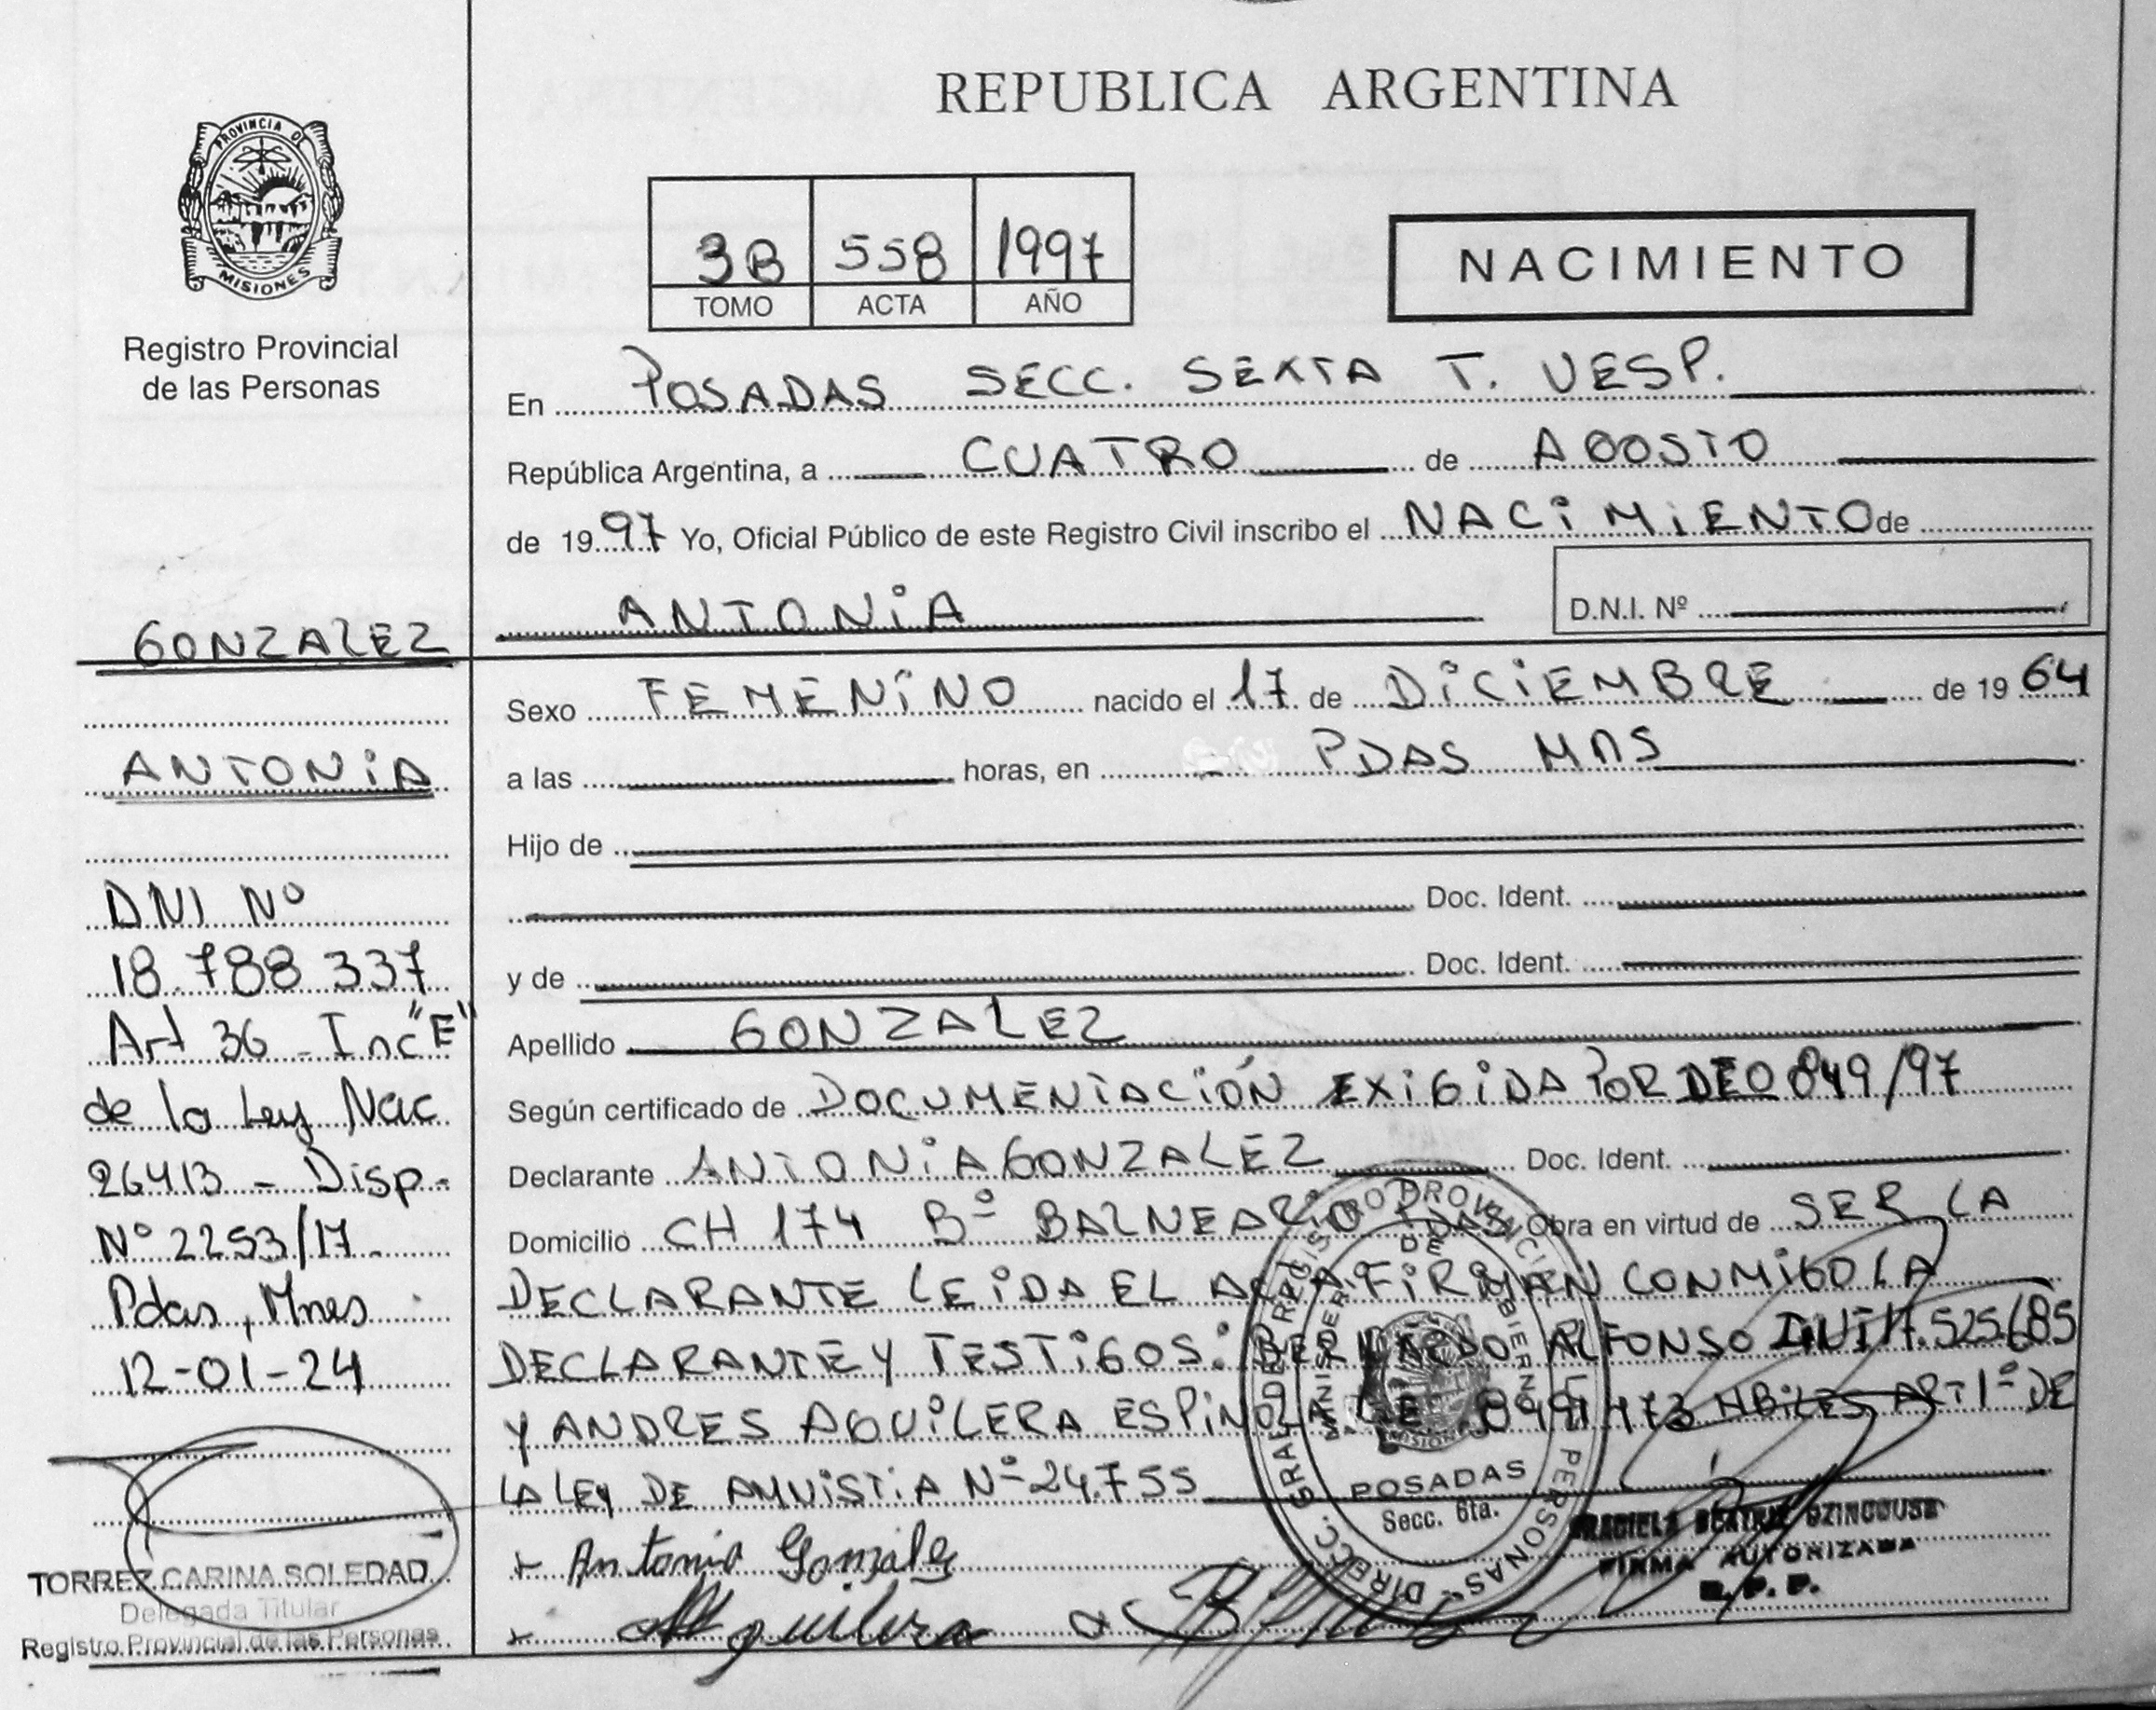 REPUBLICA ARGENTINA
PROVINCIA DE
MISIONES
Registro Provincial
de las Personas
3B 558 1997
TOMO ACTA AÑO
NACIMIENTO
En POSADAS SECC. SEXTA T. VESP.
República Argentina, a CUATRO de AGOSTO
de 1997 Yo, Oficial Público de este Registro Civil inscribo el NACIMIENTO de
ANTONIA D.N.I. Nº
Sexo FEMENINO nacido el 17 de DICIEMBRE de 1964
a las horas, en PDAS MNS
Hijo de
Doc. Ident.
y de Doc. Ident.
Apellido GONZALEZ
Según certificado de DOCUMENTACIÓN EXIGIDA POR DTO 849/97
Declarante ANTONIA GONZALEZ Doc. Ident.
Domicilio CH 174 Bº BALNEARIO PDAS Obra en virtud de SER LA
DECLARANTE LEIDA EL ACTA FIRMAN CONMIGO LA
DECLARANTE Y TESTIGOS: BERNARDO ALFONSO DNI 17.525.685
Y ANDRES AGUILERA ESPINOLA HBILES ART 1º DE
LA LEY DE AMNISTIA Nº 24.755
+ Antonia Gonzalez
+ Aguilera
GONZALEZ
ANTONIA
DNI Nº
18.788.337
Art 36 - Inc "E"
de la Ley Nac
26413 - Disp-
Nº 2253/17.
Pdas, Mnes
12-01-24
TORREZ CARINA SOLEDAD
Delegada Titular
Registro Provincial de las Personas
DIRECC. GRAL. DE REGISTRO PROVINCIAL DE PERSONAS
POSADAS
Secc. 6ta.
GRACIELA BEATRIZ
FIRMA AUTORIZADA
R. P. P.